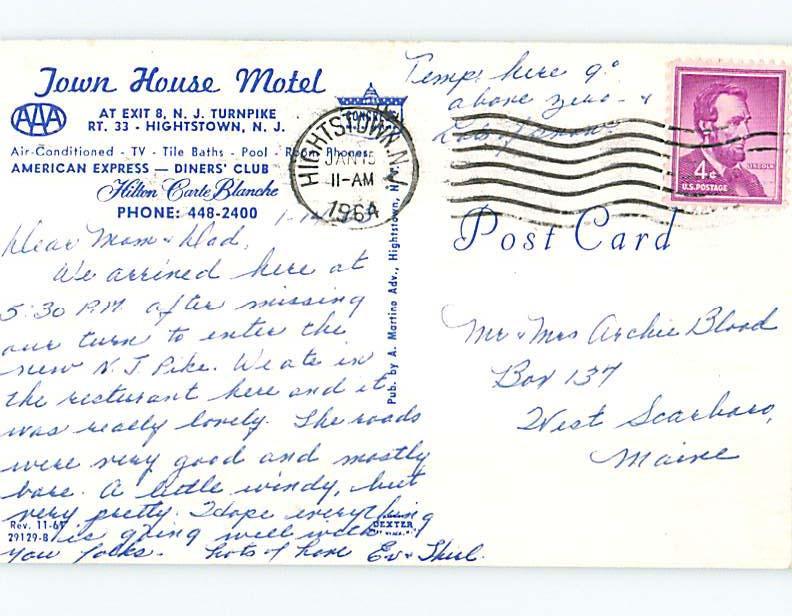 Town House Motel
AAA
AT EXIT 8, N. J. TURNPIKE
RT. 33 - HIGHTSTOWN, N. J.
Air-Conditioned - TV - Tile Baths - Pool - Room Phones
AMERICAN EXPRESS — DINERS' CLUB
Hilton Carte Blanche
PHONE: 448-2400
Dear Mom & Dad,
We arrived here at
5:30 P.M. after missing
our turn to enter the
new N.J Pike. We ate in
the resturant here and it
was really lovely. The roads
were very good and mostly
bare. A little windy, but
very pretty. I hope everything
is going well with
you folks. Lots of love Ev &
Rev. 11-6
29129-B
DEXTER
Pub. by A. Martina Adv., Hightstown, N.
Temp. here 9°
above zero - &
Lots of snow
HIGHTSTOWN, N.J.
JAN 15
11-AM
1964
4¢
U.S. POSTAGE
LINCOLN
Post Card
Mr & Mrs Archie Blood
Box 137
West Scarboro,
Maine